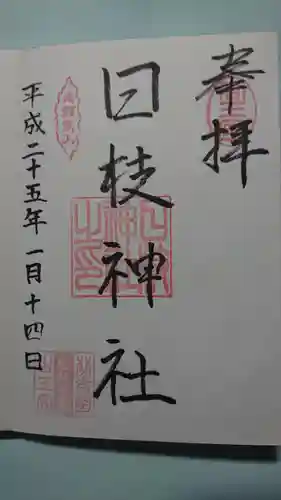 奉拝
日枝神社
平成二十五年一月十四日